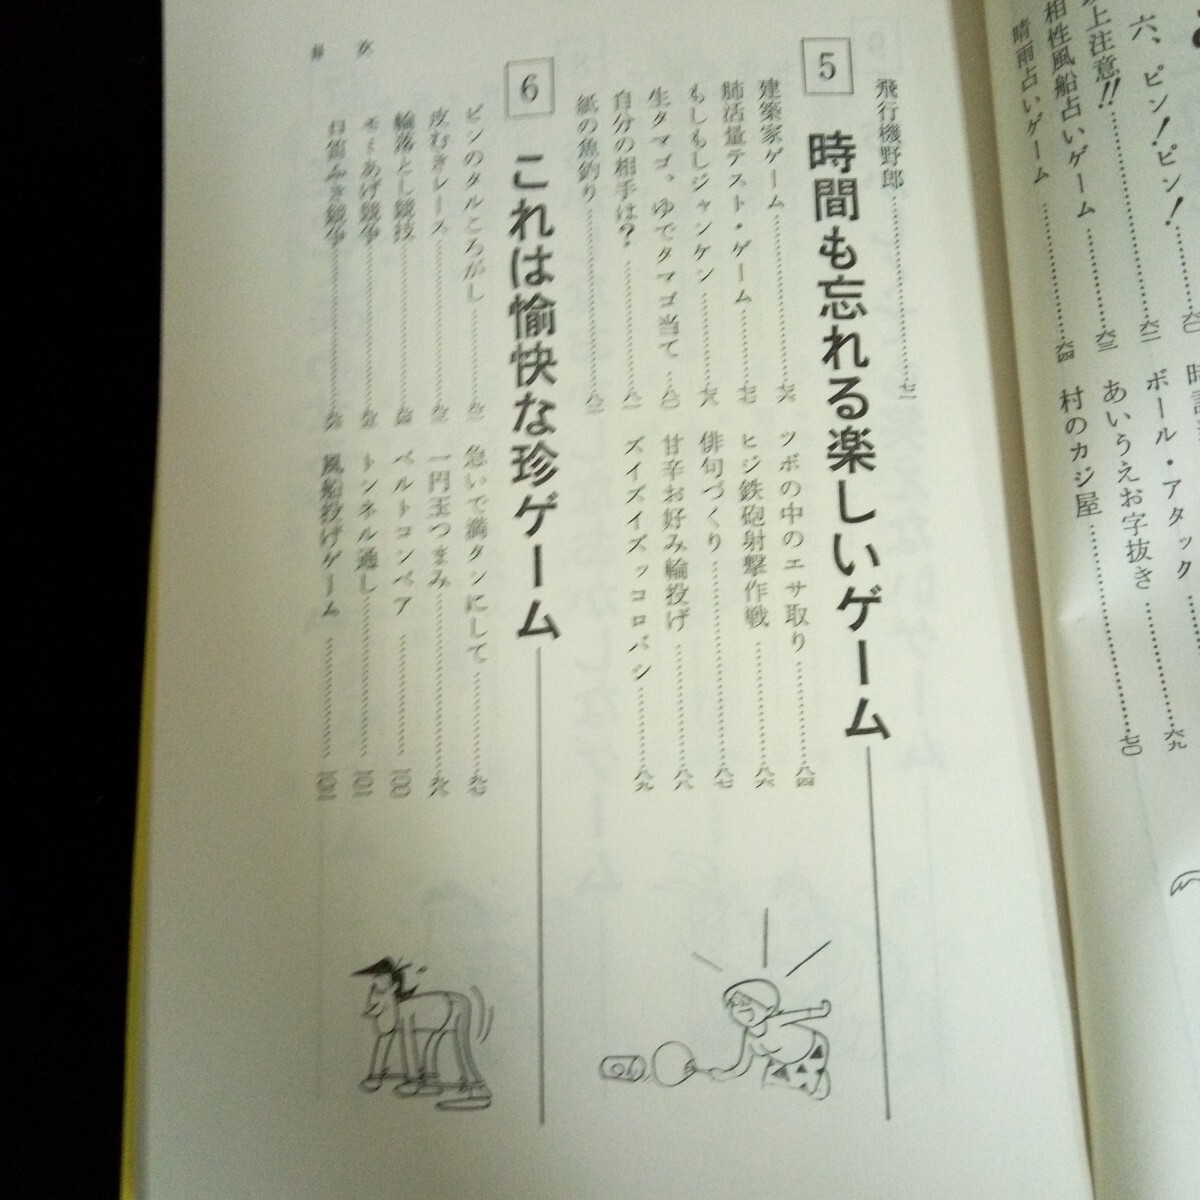 六、ピン！ピン！……六〇
上注意!!……六二
相性風船占いゲーム……六三
晴雨占いゲーム……六四
ボール・アタック……六九
あいうえお字抜き
村のカジ屋……七〇
飛行機野郎
5 時間も忘れる楽しいゲーム
建築家ゲーム……七六
肺活量テスト・ゲーム……七七
もしもしジャンケン……七八
生タマゴ、ゆでタマゴ当て……八〇
自分の相手は？……八一
紙の魚釣り
ツボの中のエサ取り……八四
ヒジ鉄砲射撃作戦……八六
俳句づくり……八七
甘辛お好み輪投げ……八八
ズイズイズッコロバシ……八九
6 これは愉快な珍ゲーム
ビンのタルころがし
皮むきレース
輪落とし競技
あげ競争
競争
急いで満タンにして……九七
一円玉つまみ……九八
ベルトコンベア……一〇〇
トンネル通し……一〇一
風船投げゲーム……一〇二
目次